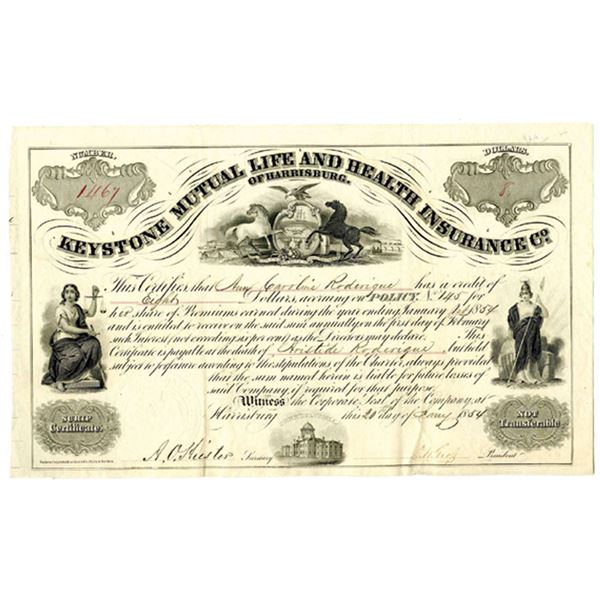 NUMBER.
1467
DOLLARS.
8.
KEYSTONE MUTUAL LIFE AND HEALTH INSURANCE CO.
OF HARRISBURG.
This Certifies that Ann Caroline Roderigue has a credit of
Eight Dollars, accruing on POLICY No 145 for
her share of Premiums earned during the year ending January 1854
and is entitled to receive on the said sum annually on the first day of February
such Interest (not exceeding six per cent) as the Directors may declare. This
Certificate is payable at the death of Aristide Roderigue but held
subject to forfeiture according to the stipulations of the Charter, always provided
that the sum named herein is liable for future losses of
said Company if required for that purpose.
Witness the Corporate Seal of the Company, at
Harrisburg this 20 Day of Jany 1854
SCRIP
Certificate.
NOT
Transferable
A.O. Hiester Secretary
President